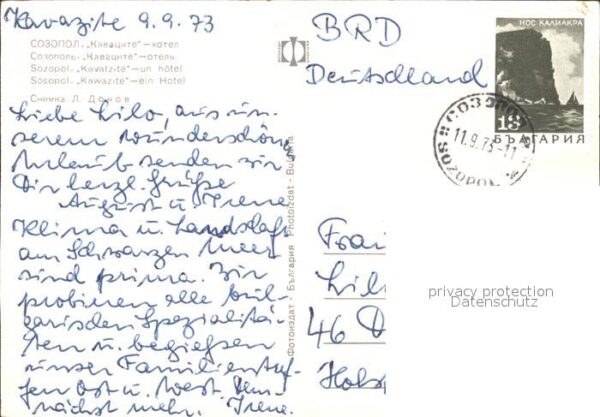 Kavazite 9.9.73
СОЗОПОЛ. „Каваците"—хотел
Созополь. „Каваците"—отель
Sozopol. „Kavatzité"—un hôtel
Sosopol. „Kawazite"—ein Hotel
Снимка Л. Дочев
Liebe Lilo, aus un-
serem wunderschönen
Urlaub senden wir
Dir herzl. Grüße
August u. Irene
Klima u. Landschaft
am Schwarzen Meer
sind prima. Wir
probieren alle bul-
garischen Spezialitä-
ten u. begießen
unser Familientref-
fen Ost u. West. Dem-
nächst mehr. Irene.
Фотоиздат - България Photoizdat - Bulgaria
BRD
Deutschland
НОС КАЛИАКРА
13
БЪЛГАРИЯ
СОЗОПОЛ
11.9.73-11
SOZOPOL
Frau
Lil
46 D
Hols
privacy protection
Datenschutz